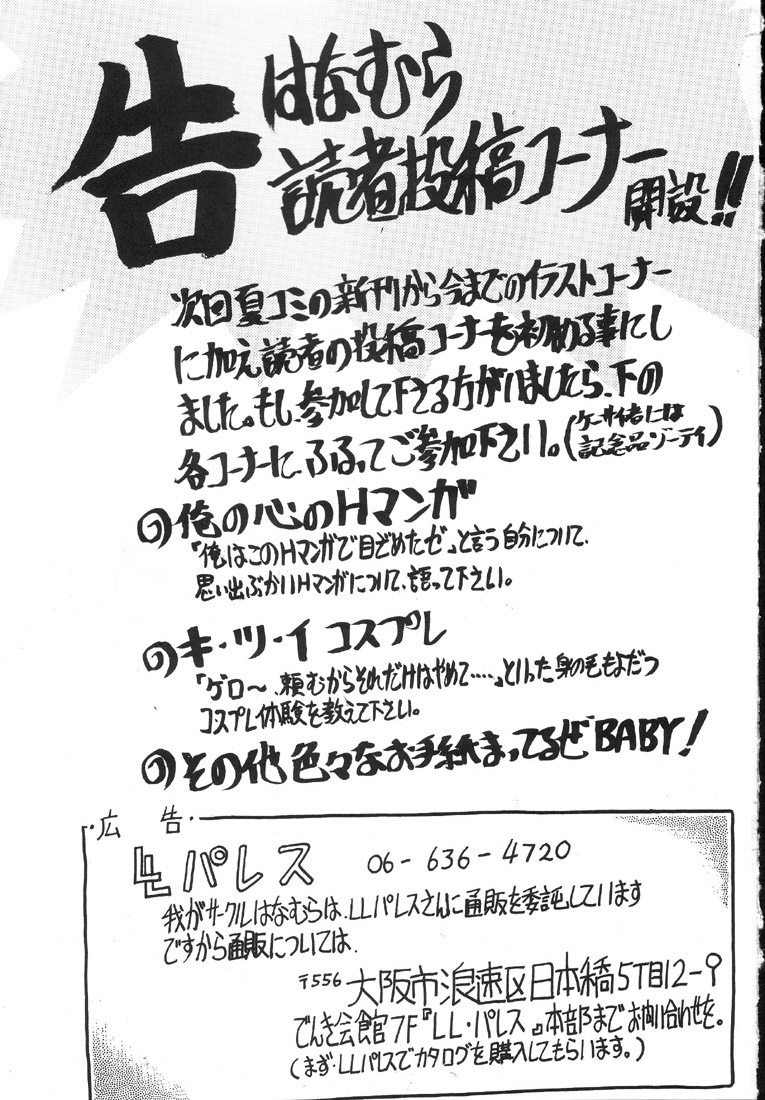 告
はなむら
読者投稿コーナー
開設!!
次回夏コミの新刊から今までのイラストコーナー
に加え読者の投稿コーナーを初める事にし
ました。もし、参加して下さる方がいましたら、下の
各コーナーに、ふるってご参加下さい。(ケーサイ者には
記念品ゾーテイ)
俺の心のHマンガ
「俺はこのHマンガで目ざめたぜ」と言う自分について、
思い出ぶかいHマンガについて、語って下さい。
キ・ツ・イ コスプレ
「ゲロ〜、頼むからそれだけはやめて……」といった身の毛もよだつ
コスプレ体験を教えて下さい。
その他色々なお手紙まってるぜBABY!
・広 告・
LLパレス 06-636-4720
我がサークルはなむらは、LLパレスさんに通販を委託しています
ですから通販については、
〒556 大阪市浪速区日本橋5丁目12-9
でんき会館7F『LL・パレス』本部までお問い合わせを。
(まず・LLパレスでカタログを購入してもらいます。)